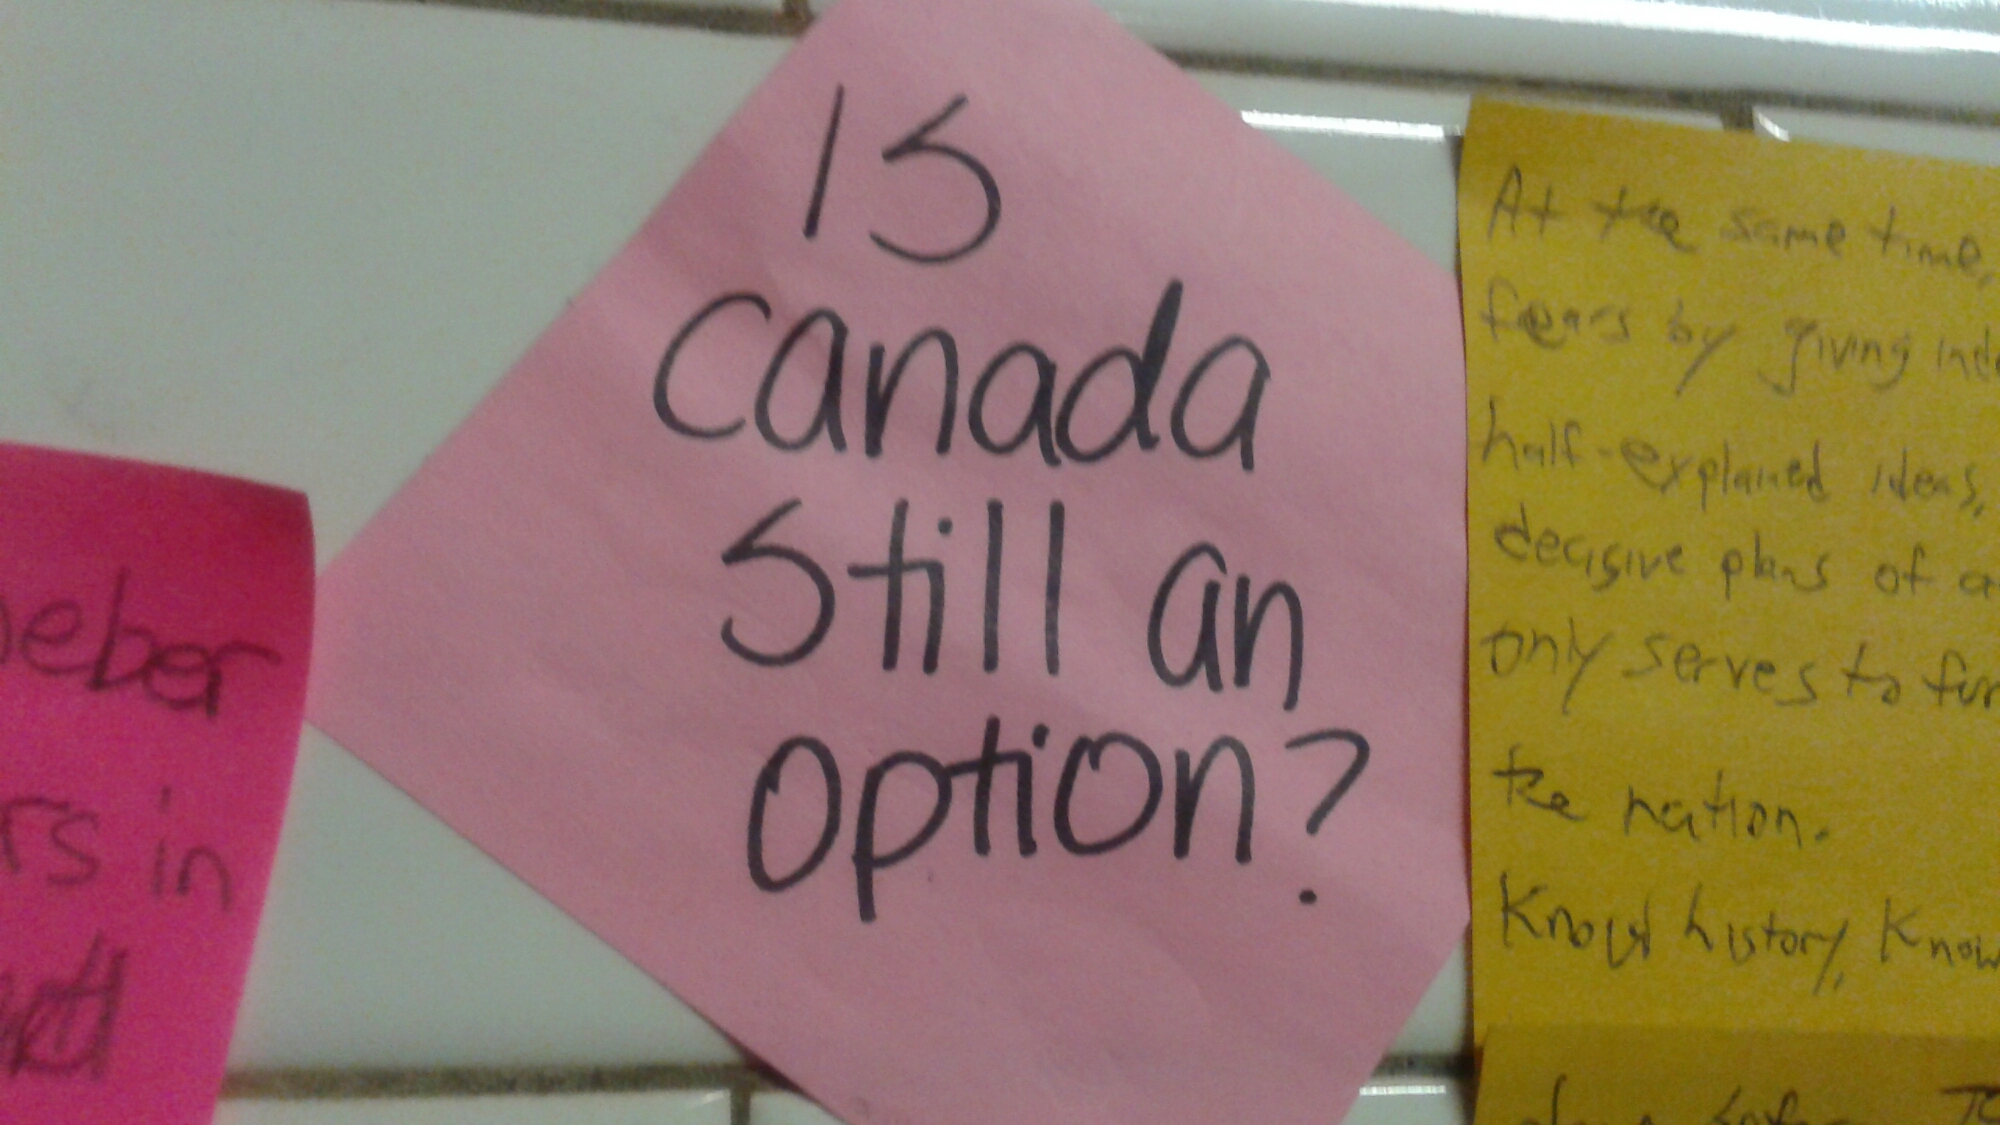 Is
Canada
Still an
option?
eber
rs in
At the same time,
fears by giving
half-explained ideas,
decisive plans of
only serves to
the nation.
Know history, Know